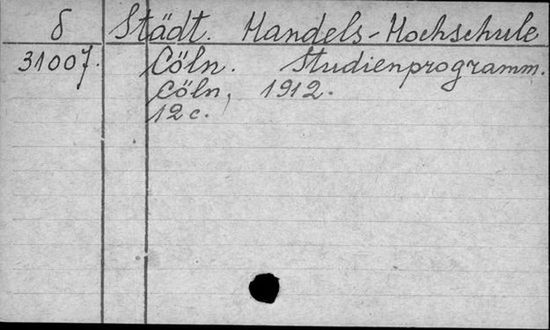 δ Städt. Handels-Hochschule
31007. Cöln. Studienprogramm.
Cöln, 1912.
12 c.